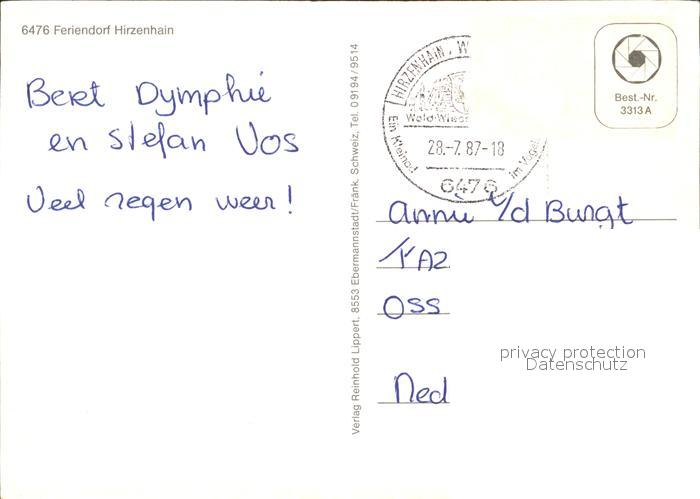 6476 Feriendorf Hirzenhain
Bert Dymphie
en Stefan Vos
Veel regen weer!
Verlag Reinhold Lippert, 8553 Ebermannstadt/Fränk. Schweiz, Tel. 09194/9514
HIRZENHAIN, W
Wald·Wies
Ein Kleinod
im Vogel
28.-7.87-18
6476
Best.-Nr.
3313 A
Annie v/d Burgt
OSS
Ned
privacy protection
Datenschutz